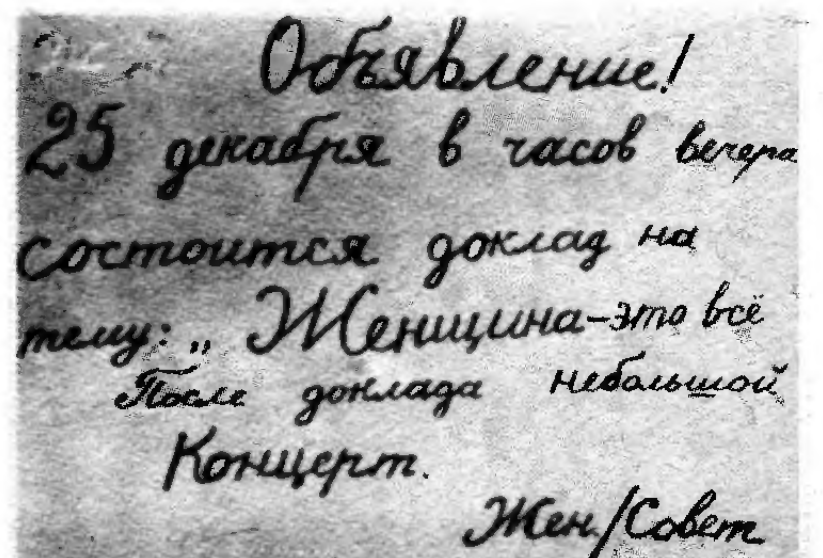 Объявление!
25 декабря в часов вечера
состоится доклад на
тему: „ Женщина-это всё
После доклада небольшой
Концерт.
Жен./Совет